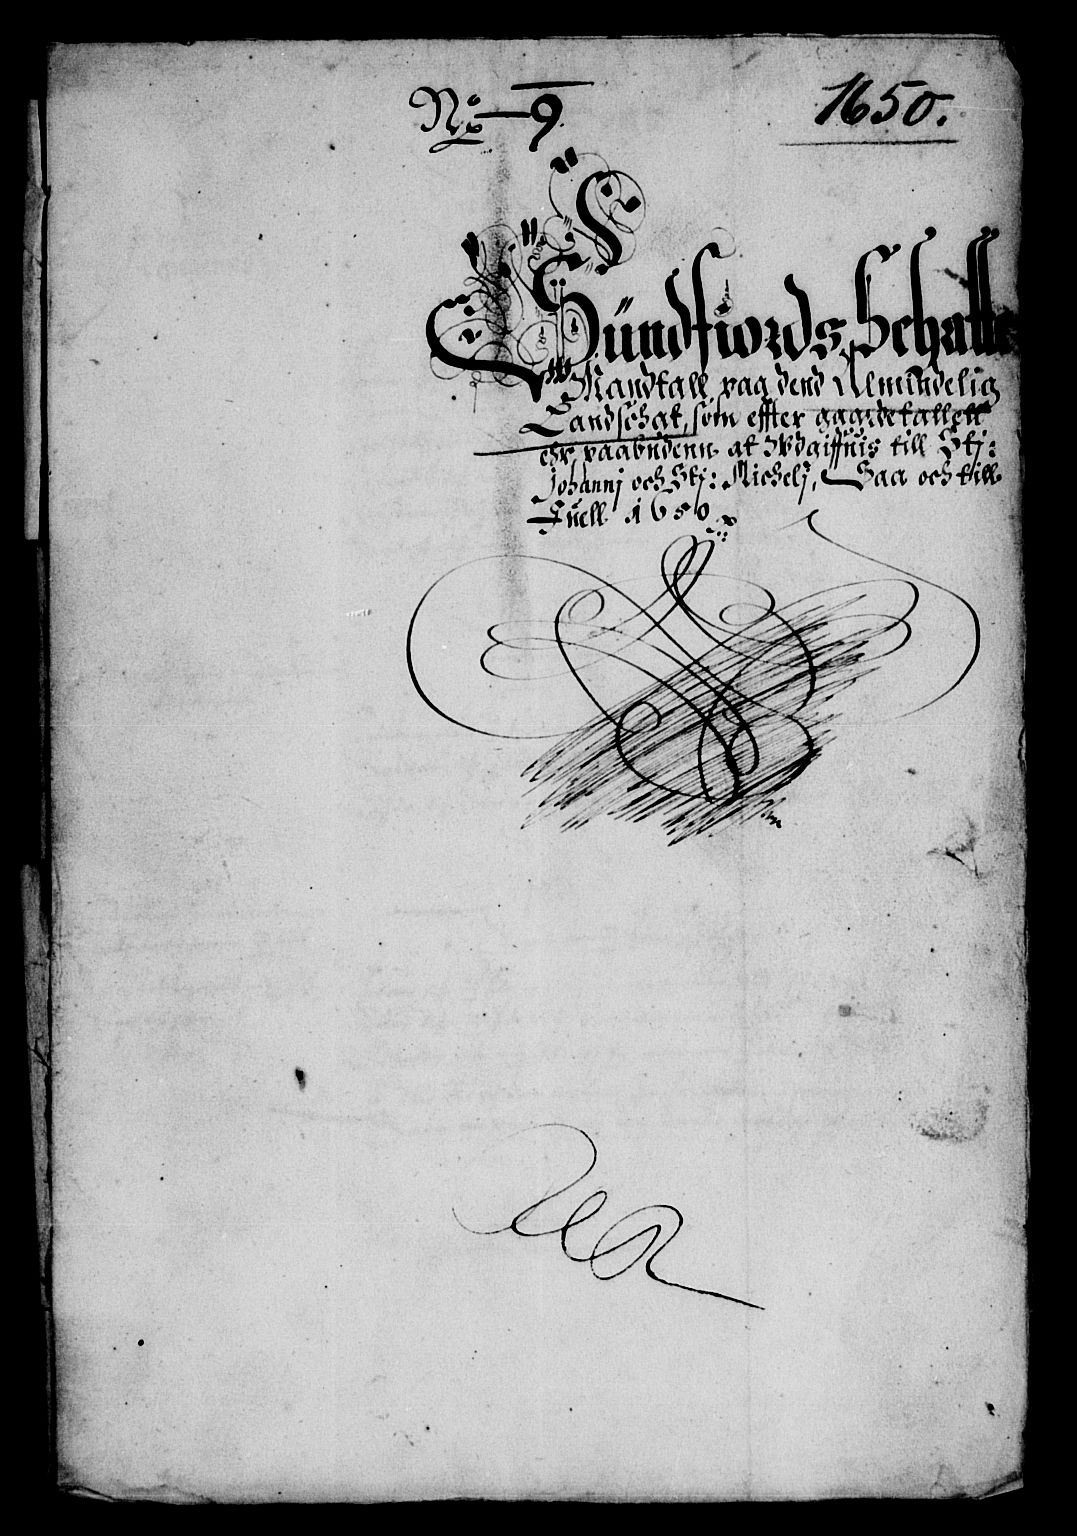 No 9.
1650.
Sündfiords Schatte
Mandtall paa dend Almindelig
Landschat, som effter gaardetallet
ehr paabudenn at Wdgiffuis till Stj:
Johannj och Stj: Michelj, Saa och till
Juell 1650